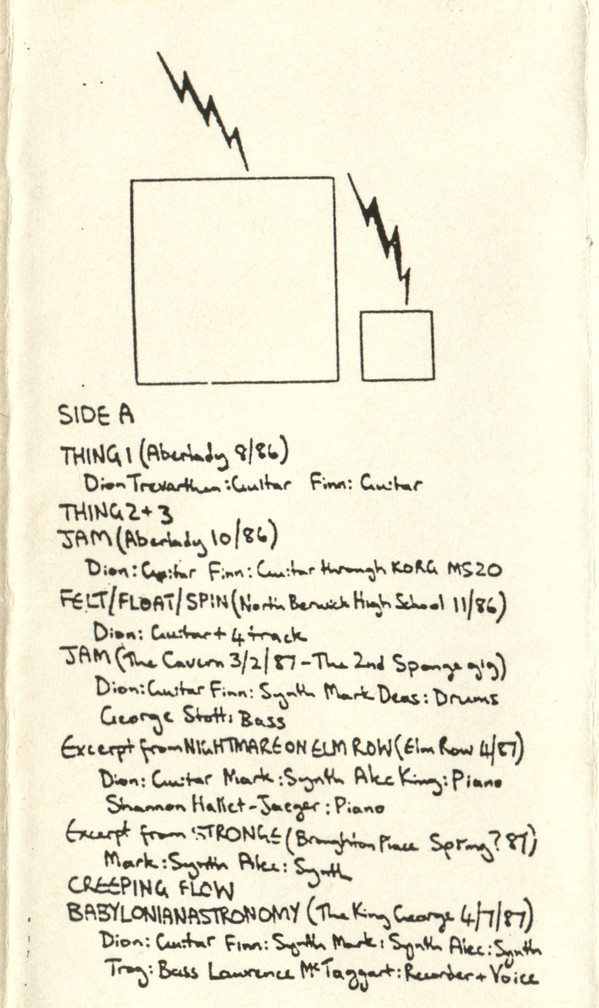 SIDE A
THING 1 (Aberlady 8/86)
Dion Trevarthen: Guitar Finn: Guitar
THING 2+3
JAM (Aberlady 10/86)
Dion: Guitar Finn: Guitar through KORG MS20
FELT/FLOAT/SPIN (North Berwick High School 11/86)
Dion: Guitar + 4 track
JAM (The Cavern 3/2/87 - The 2nd Sponge gig)
Dion: Guitar Finn: Synth Mark Deas: Drums
George Stott: Bass
Excerpt from NIGHTMARE ON ELM ROW (Elm Row 4/87)
Dion: Guitar Mark: Synth Alec King: Piano
Shannon Hallet-Jaeger: Piano
Excerpt from STRONGE (Broughton Place Spring? 87)
Mark: Synth Alec: Synth
CREEPING FLOW
BABYLONIAN ASTRONOMY (The King George 4/7/87)
Dion: Guitar Finn: Synth Mark: Synth Alec: Synth
Trog: Bass Lawrence McTaggart: Recorder + Voice